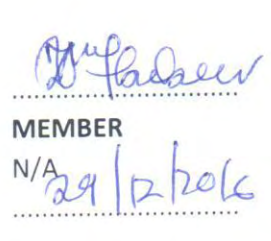 MEMBER
N/A
29/12/2016